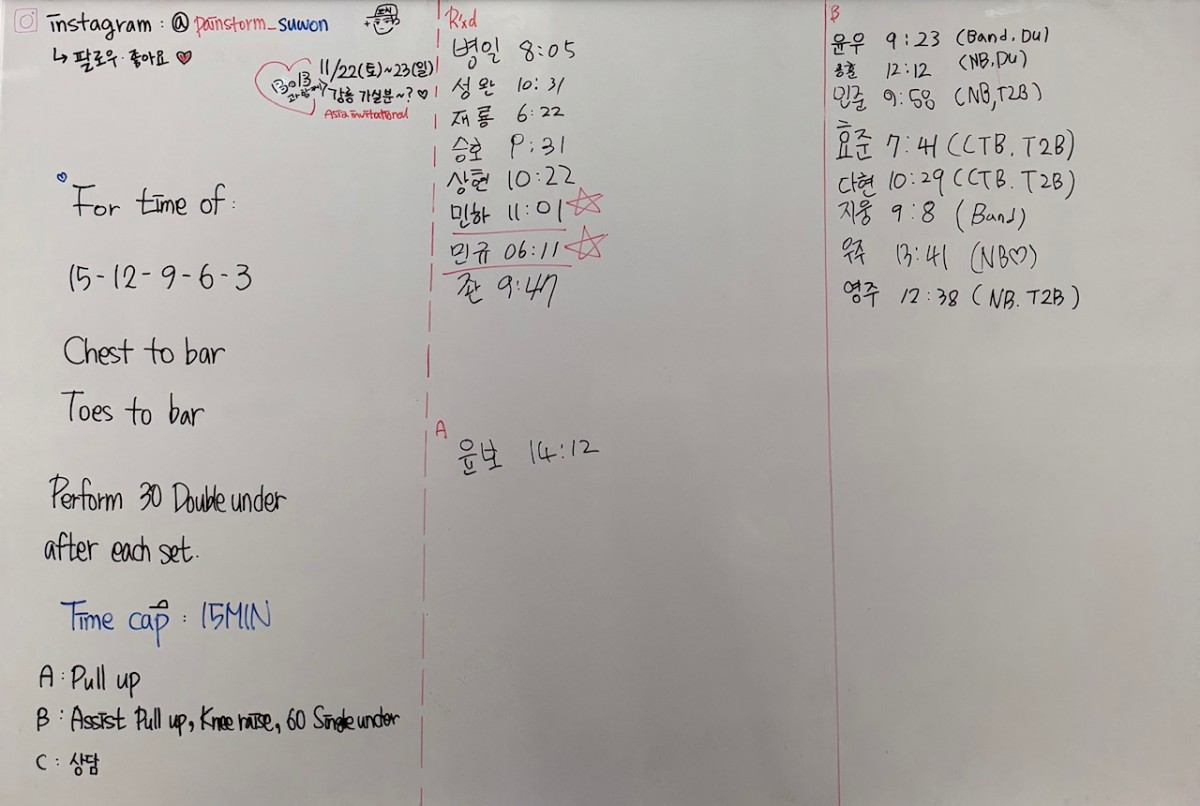 instagram : @ painstorm_suwon
↳ 팔로우·좋아요 ♥
11/22(토)~23(일)
강릉 가실분~? ♡
Asia invitational
For time of :
15 - 12 - 9 - 6 - 3
Chest to bar
Toes to bar
Perform 30 Double under
after each set.
Time cap : 15MIN
A : Pull up
B : Assist Pull up, Knee raise, 60 Single under
C : 상담
R'xd
병일 8:05
성완 10:31
재룡 6:22
승호 9:31
상현 10:22
민하 11:01 ☆
민규 06:11 ☆
존 9:47
A
윤보 14:12
B
윤우 9:23 (Band, DU)
12:12 (NB, DU)
민준 9:58 (NB, T2B)
효준 7:41 (CTB. T2B)
다현 10:29 (CTB. T2B)
지웅 9:8 (Band)
우주 13:41 (NB♡)
영주 12:38 (NB. T2B)